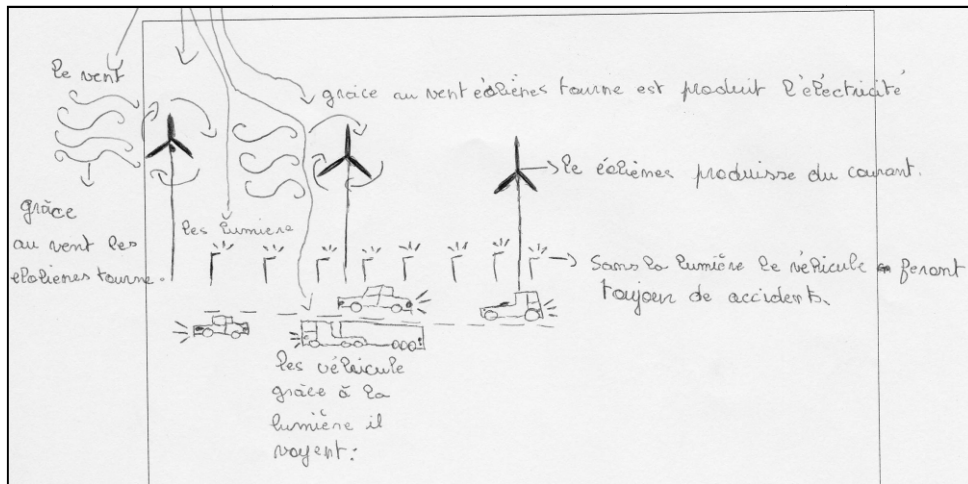 le vent
grâce au vent éoliènes tourne est produit l'électricité
le éoliènes produisse du courant.
grâce
au vent les
éloliènes tourne.
les lumiere
Sans la lumière le véhicule feront
toujour de accidents.
les véhicule
grâce à la
lumière il
voyent.